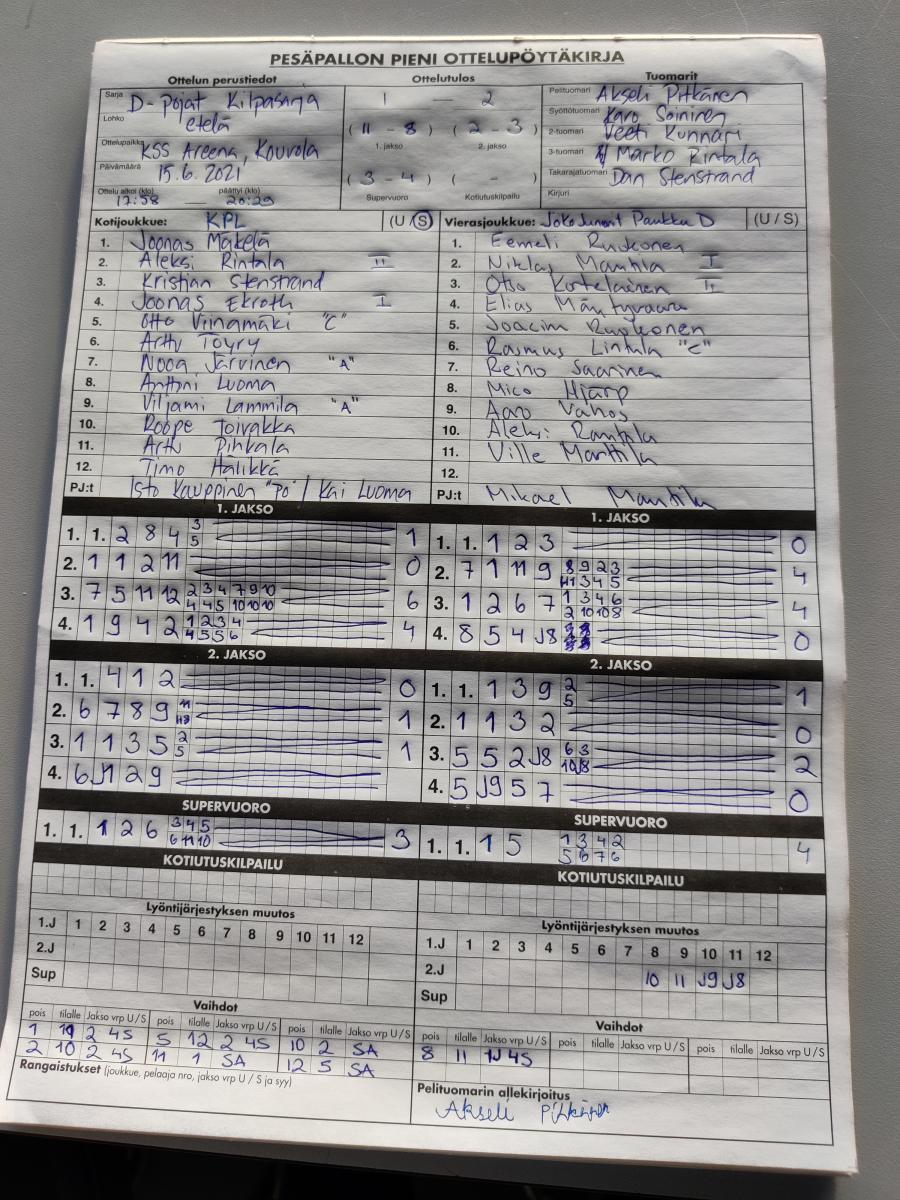 PESÄPALLON PIENI OTTELUPÖYTÄKIRJA
Ottelun perustiedot
Ottelutulos
Tuomarit
Sarja D-pojat Kilpasarja
Lohko etelä
Ottelupaikka KSS Areena, Kouvola
Päivämäärä 15.6.2021
Ottelu alkoi (klo) päättyi (klo)
17:58 — 20:29
1 — 2
(11 - 8) (2 - 3)
1. jakso 2. jakso
(3 - 4) ( - )
Supervuoro Kotiutuskilpailu
Pelituomari Akseli Pitkänen
Syöttötuomari Karo Soininen
2-tuomari Veeti Kunnari
3-tuomari Marko Rintala
Takarajatuomari Dan Stenstrand
Kirjuri
Kotijoukkue: KPL (U / S)
1. Joonas Mäkelä
2. Aleksi Rintala II
3. Kristian Stenstrand
4. Joonas Ekroth I
5. Otto Viinamäki "C"
6. Arttu Töyry
7. Nooa Järvinen "A"
8. Anttoni Luoma
9. Viljami Lammila "A"
10. Roope Toivakka
11. Arttu Pihkala
12. Timo Hälikkä
PJ:t Isto Kauppinen "PO" / Kai Luoma
Vierasjoukkue: Joko Juniorit Paukku D (U / S)
1. Eemeli Ruokonen
2. Niklas Mantila I
3. Otso Kortelainen II
4. Elias Mäntyvaara
5. Joacim Ruokonen
6. Rasmus Lintula "C"
7. Reino Saarinen
8. Mico Hjärp
9. Aaro Vahos
10. Aleksi Rantila
11. Ville Mantila
12.
PJ:t Mikael Mantila
1. JAKSO
1. 1. 2 8 4 3 5 1
2. 1 1 2 11 0
3. 7 5 11 12 2 3 4 7 9 10 6
4 4 5 10 10 10
4. 1 9 4 2 1 2 3 4 4
4 5 5 6
2. JAKSO
1. 1. 4 1 2 0
2. 6 7 8 9 1
3. 1 1 3 5 2 5 1
4. 6 J1 2 9
SUPERVUORO
1. 1. 1 2 6 3 4 5 3
6 11 10
KOTIUTUSKILPAILU
Lyöntijärjestyksen muutos
1.J 1 2 3 4 5 6 7 8 9 10 11 12
2.J
Sup
Vaihdot
pois tilalle Jakso vrp U / S pois tilalle Jakso vrp U / S pois tilalle Jakso vrp U / S
1 2 4S 5 12 2 4S 10 2 SA
2 10 2 4S 11 1 SA 12 5 SA
Rangaistukset (joukkue, pelaaja nro, jakso vrp U / S ja syy)
1. JAKSO
1. 1. 1 2 3 0
2. 7 1 11 9 8 9 2 3 4
3 4 5
3. 1 2 6 7 1 3 4 6 4
2 10 10 8
4. 8 5 4 J8 0
2. JAKSO
1. 1. 1 3 9 2 5 1
2. 1 1 3 2 0
3. 5 5 2 J8 6 3 2
10 J8
4. 5 J9 5 7 0
SUPERVUORO
1. 1. 1 5 1 3 4 2 4
5 6 7 6
KOTIUTUSKILPAILU
Lyöntijärjestyksen muutos
1.J 1 2 3 4 5 6 7 8 9 10 11 12
2.J 10 11 J9 J8
Sup
Vaihdot
pois tilalle Jakso vrp U / S pois tilalle Jakso vrp U / S pois tilalle Jakso vrp U / S
8 11 4S
Pelituomarin allekirjoitus
Akseli Pitkänen